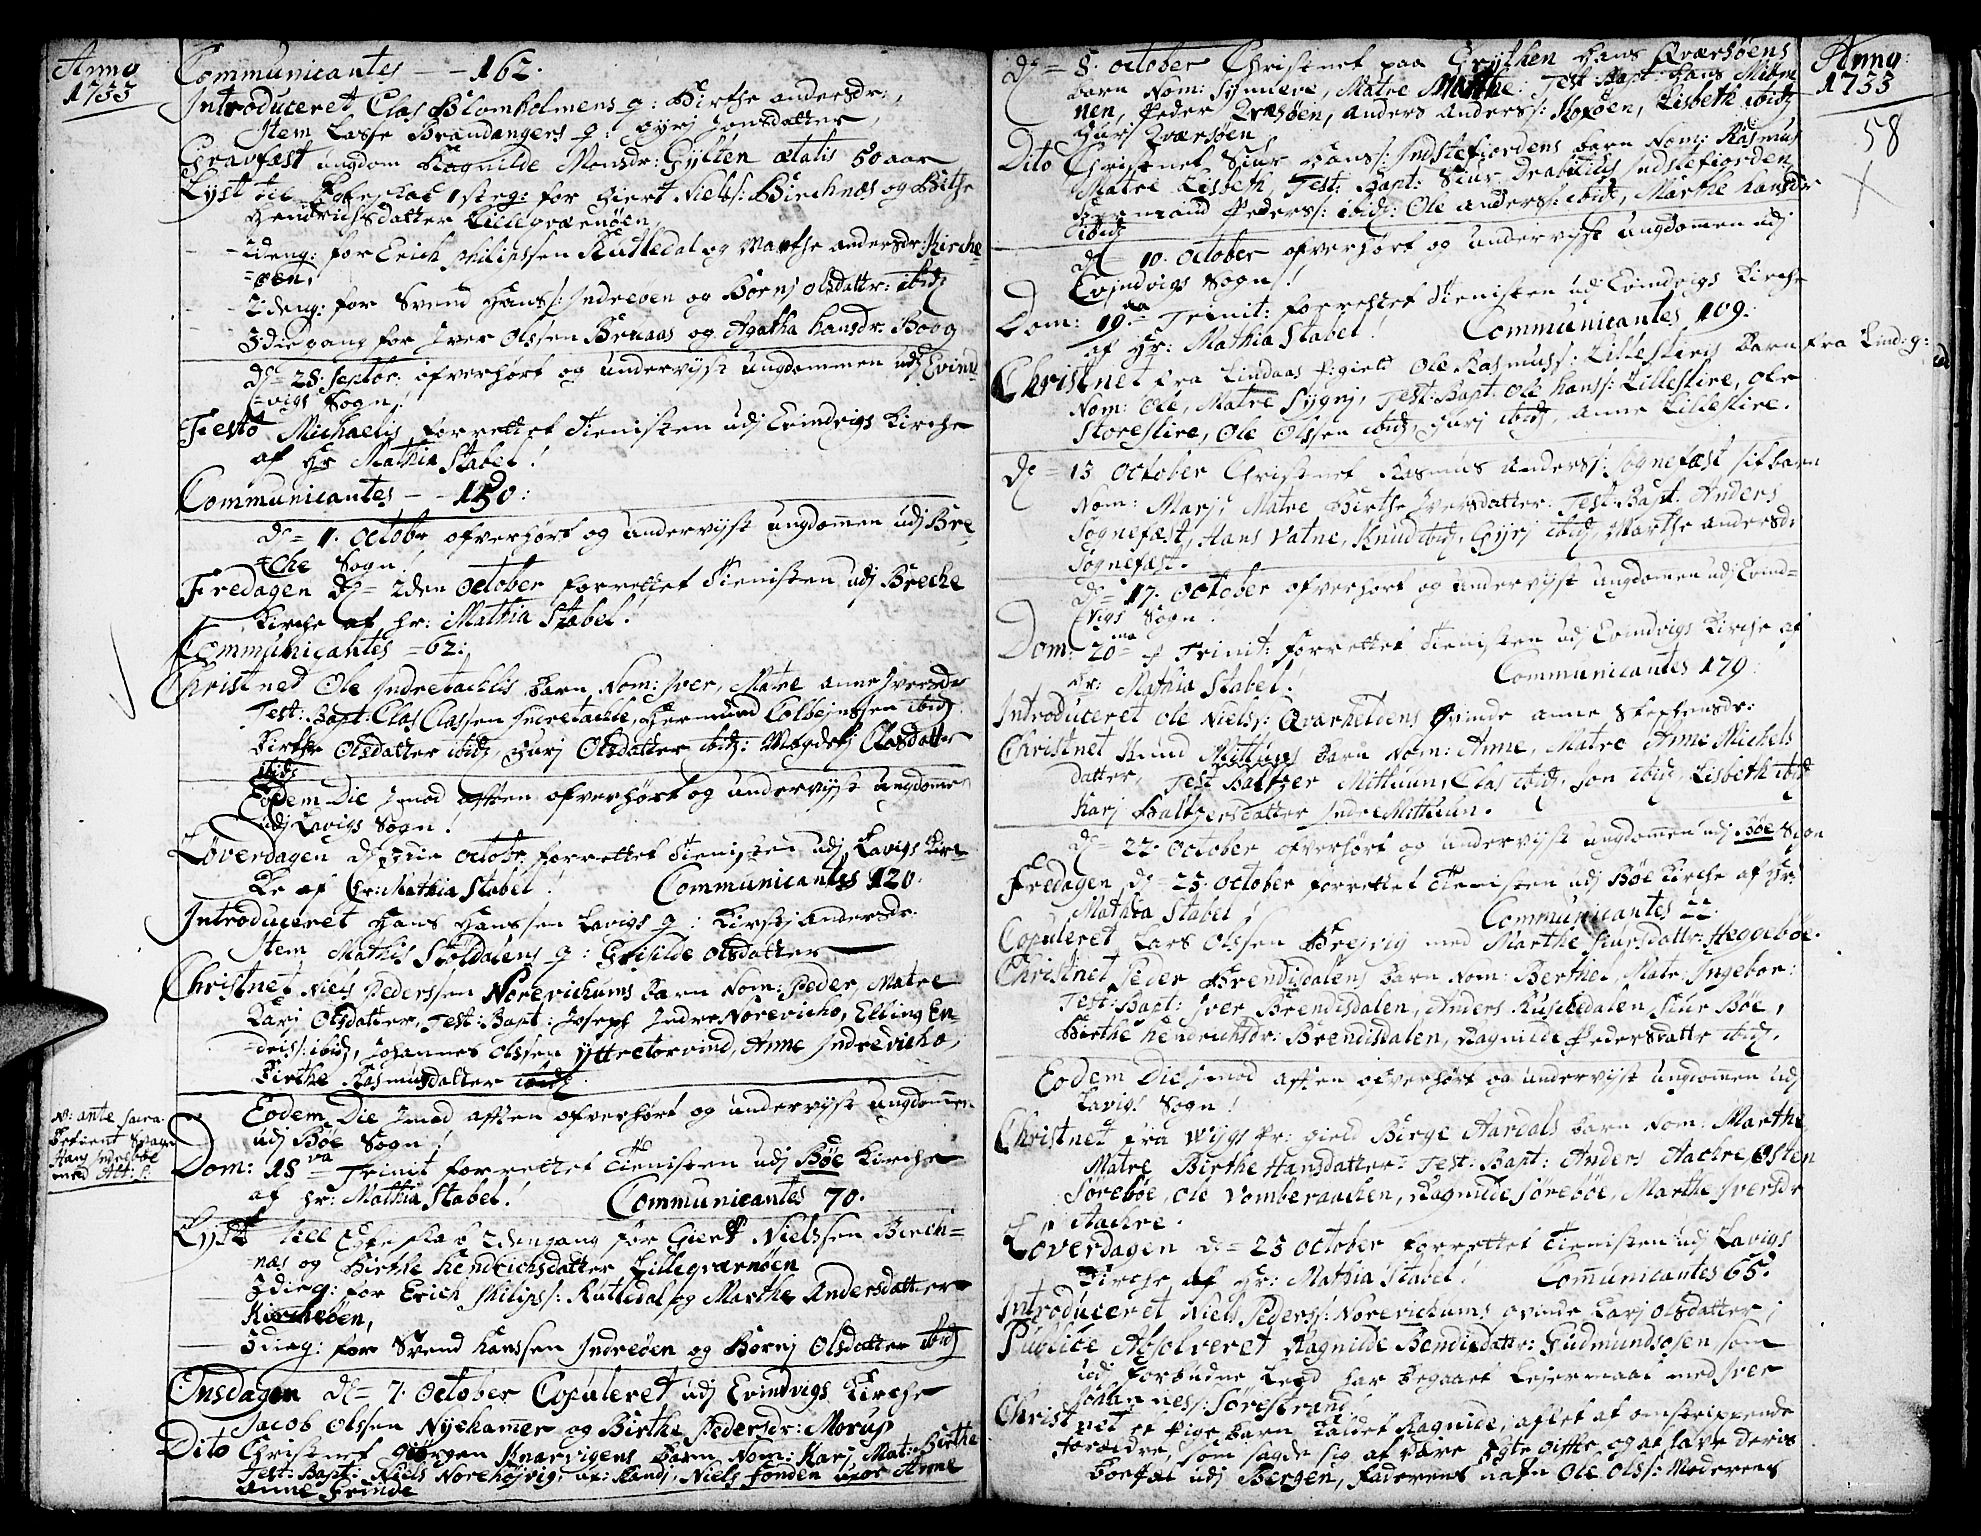 Anno
1733
Communicantes - - 162.
Introduceret Clas Blomholmens q: Birthe andersdr:,
Item Lasse Brandangers q: gyrj Jonsdatter,
Gravfæst ungdom Ragnilde Monsdr: Gylten ætatis 50 aar
Lyst til Egteskab 1ste g: for Giert Niels: Birchnæs og Birthe
Hendrichsdatter Lillegrænøen,
2den g: for Erich philipssen Rutledal og Marthe andersdr: Kirche
=øen,
2den g: for Svend Hanss: Indreøen og Børnj olsdattr: ibid
3die gang for Iver Olssen Bruaas og Agatha hansdr. Boog
d= 28. Septbr: ofverhørt og underviist ungdommen udj Evind
=vigs Sogn!
Festo Michaelis forrettet Tienisten udj Evindvigs Kirche
af Hr Mathia Stabel!
Communicantes - - 150:
d= 1. octobr ofverhørt og undervijst ungdomen udj Bre
=che Sogn!
Fredagen d= 2den october forrettet Tienisten udj Breche
Kirche af hr: Mathia Stabel!
Communicantes =62:
Christned Ole Indretachlis barn Nom: Iver, Matre anne Iversdr
Test: Bapt: Clas Classen Indretachle, Hermund Colbejnssen ibid
Birthe Olsdatter ibid, gurj Olsdatter ibid: Magdelj Clasdatter
ibid
Eodem Die Imod aften ofverhørt og undervijst ungdomen
udj Lavigs Sogn!
Løverdagen d= 3die octobr forrettet Tienisten udj Lavigs Kir=
ke af Hr: Mathia Stabel! Communicantes 120.
Introduceret Hans Hanssen Lavigs q: Kirstj Andersdr.
Item Mathis Støldalens q: Grisilde olsdatter
Christnet Niels Pederssen Norevichums barn Nom: Peder, Matre
Karj Olsdatter, Test: Bapt: Joseph Indre Norevicho, Elling En=
driss: ibid, Johannes Olssen yttretorvind, Anne Indrevicho,
Birthe Rasmusdatter ibid
Eodem Die Imod aften ofverhørt og undervijst ungdomen
udj Bøe Sogn!
N: ante sacra
betient
Hans Indrebøe
med Alt: S:
Dom: 18 va Trinit forrettet Tienisten udj Bøe Kirche
af hr: Mathia Stabel! Communicantes 70.
Lyst till Egteskab 2den gang for Giert Nielssen Birch=
næs og Birthe Hendrichsdatter Lillegrænøen
3die g: for Erich Philips: Rutledal og Marthe Andersdatter
Kirchebøen,
3die g: for Svend Hanssen Indreøen og Børnj Olsdatter ibid
Onsdagen d= 7. October Copuleret udj Evindvigs Kirche
Jacob Olssen Nyehamer og Birthe Pedersdr: Morup
Dito Christnet Knarvigens Barn Nom: Karj, Mat: Birthe
Test: Bapt: Niels Norehøjvig Niels fonden Anne
Anne Frinde
d= 8. october Christnet paa Grythen Hans Qværsøens
barn Nom: Synneve, Matre Marthe: Test: Bapt: Hans Mitøm
nen, Peder Qværsøen, Anders Anders: Rorøen, Lisbeth ibid
Gurj Qværsøen
Dito Christnet Siur Hans: Indstefiordens barn Nom: Rasmus
Matre Lisbeth, Test: Bapt: Siur Indstefiorden
Hermund Peders: ibid: Ole Anders: ibid, Marthe hansdr
ibid
d= 10. October ofverhørt og undervijst ungdommen udj
Evindvigs Sogn!
Dom: 19 na Trinit: forrettet Tienisten udj Evindvigs Kirche
af Hr: Mathia Stabel! Communicantes 109.
Christnet fra Lindaas pgield Ole Rasmuss: Lilleslires Barn fra Lind:g:
Nom: Ole, Matre Sygnj, Test: Bapt: Ole hanss: Lilleslire, Ole
Storeslire, Ole Olssen ibid, Gurj ibid, anne Lilleslire.
d= 13 October Christnet Rasmus Anders: Sognefæst sit barn
Nom: Marj, Matre Birthe Iversdatter. Test: Bapt. Anders
Sognefæst, Hans Vatne, Knud ibid, Gyrj ibid, Marthe andersdr
Sognefæst.
d= 17. October ofverhørt og undervijst ungdomen udj Evind=
vigs Sogn!
Dom: 20 ma p Trinit: forrettet Tienisten udj Evindvigs Kirche af
Hr: Mathia Stabel! Communicantes 179.
Introduceret Ole Niels: Qvarheldens Qvinde anne Stephensdr:
Christnet Knud Mithuns Barn Nom: Anne, Matre Anne Michels
datter, Test Baltzer Mithuun, Clas ibid, Jon ibid, Lisbeth ibid
Karj Baltzersdatter Indre Mithuun.
d= 22. October ofverhørt og undervijst ungdomen udj Bøe Sogn
Fredagen d= 23. October forrettet Tienisten udj Bøe Kirche af Hr
Mathia Stabel! Communicantes 22.
Copuleret Lars Olssen Brejvig med Marthe Siursdattr: Heggebøe.
Christnet Peder Brendisdalens Barn Nom: Berthel, Matr: Ingebor:
Test: Bapt: Iver Brendisdalen, Anders Rusledalen, Siur Bøe,
Birthe hendrichsdr: Brendisdalen, Ragnilde Pedersdattr ibid.
Eodem Die Imod aften ofverhørt og undervijst ungdomen udj
Lavigs Sogn!
Christnet fra Wijgs pr: gield Birge Aardals barn Nom: Marthe,
Matre Birthe Hansdatter: Test: Bapt: Anders Aachre, Østen
Sørebøe, Ole Vomberaachen, Ragnilde Sørebøe, Marthe Iversdr
Aachre.
Løverdagen d= 23 October forrettet Tienisten udj Lavigs
Kirche af Hr: Mathia Stabel! Communicantes 65.
Introduceret Niels Peders: Norevichums qvinde Karj olsdatter;
Publice Absolveret Ragnilde Bendicsdattr: Gudmundsøen, som
udj forbudne Leed har begaaet Lejermaal med Iver
Johannes: Sørestrand
Christnet et Pige barn kaldet Ragnilde, aflet af omstrippende
forældre, som sagde sig at være Egte gifte, og at have deris
Boefæl udj Bergen, faderens nafn Ole Ols: Moderens
Anno:
1733
58